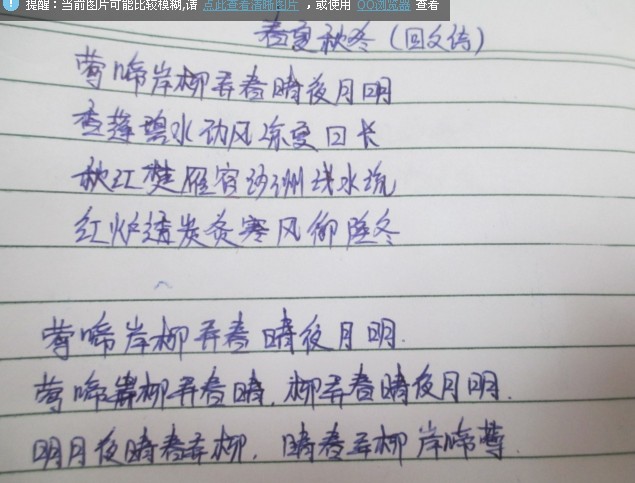 提醒：当前图片可能比较模糊,请 点此查看清晰图片 ，或使用 QQ浏览器 查看
春夏秋冬（回文诗）
莺啼岸柳弄春晴夜月明
香莲碧水动风凉夏日长
秋江楚雁宿沙洲浅水流
红炉透炭炙寒风御隆冬
莺啼岸柳弄春晴夜月明.
莺啼岸柳弄春晴,柳弄春晴夜月明.
明月夜晴春弄柳,晴春弄柳岸啼莺.